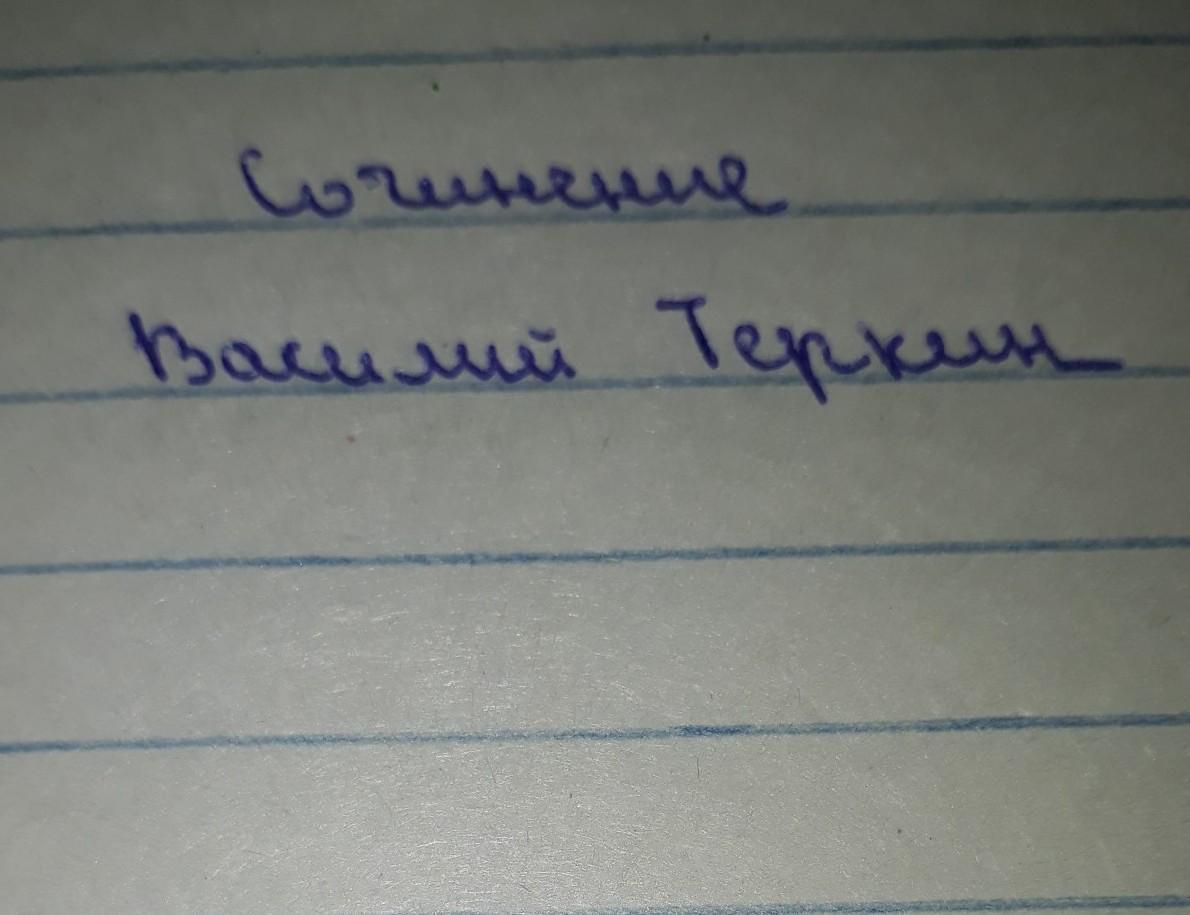 Сочинение
Василий Теркин